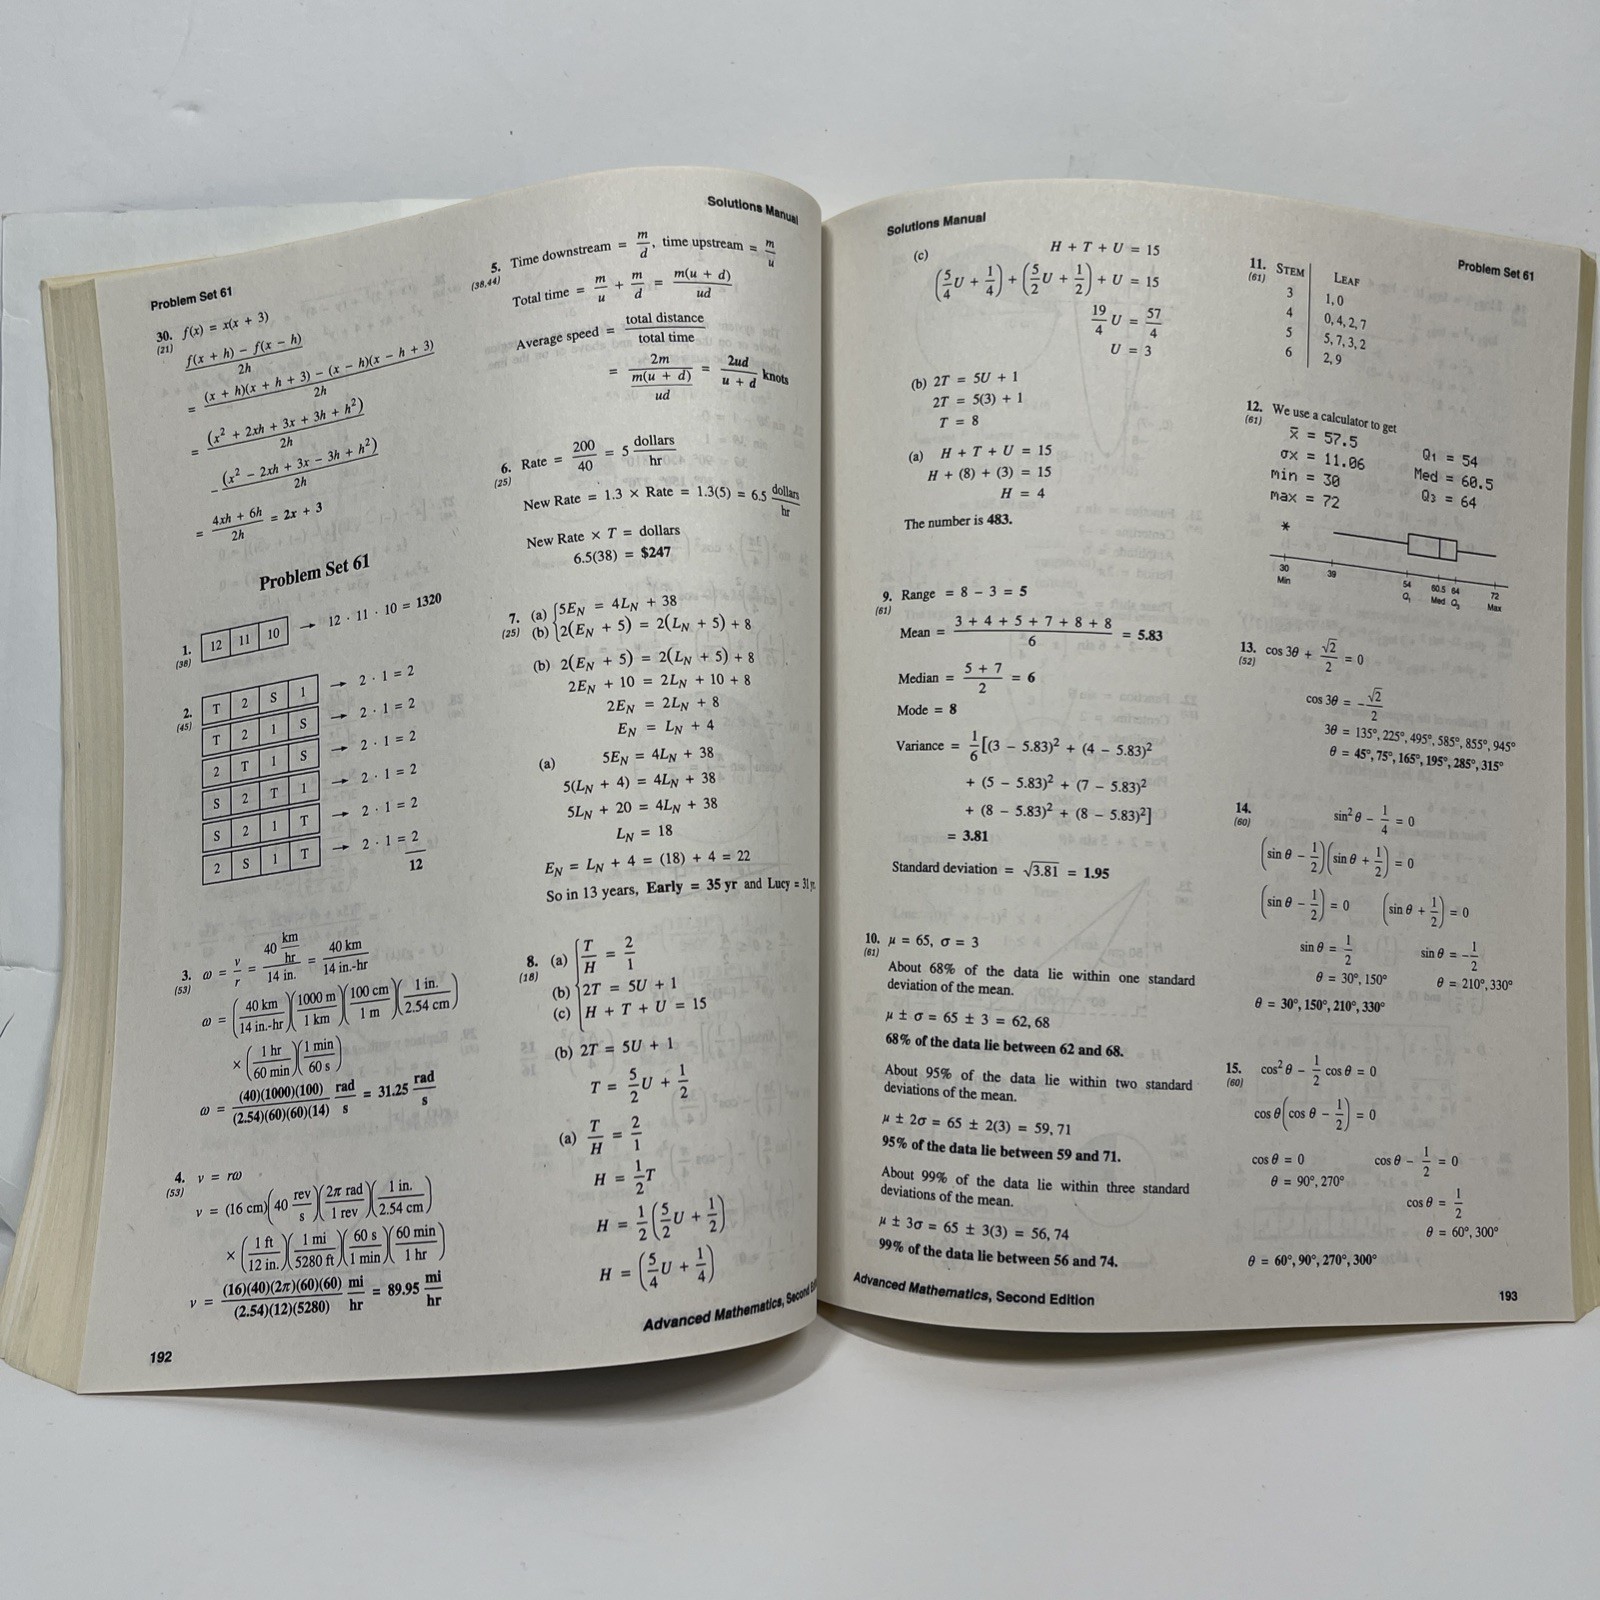 Solutions Manual
Problem Set 61
30. f(x) = x(x + 3)
(21)
f(x + h) − f(x − h)
2h
= (x + h)(x + h + 3) − (x − h)(x − h + 3)
2h
= (x² + 2xh + 3x + 3h + h²)
2h
− (x² − 2xh + 3x − 3h + h²)
2h
= 4xh + 6h / 2h = 2x + 3
Problem Set 61
1. 12 11 10 → 12 · 11 · 10 = 1320
(38)
2. T 2 S 1 → 2 · 1 = 2
(45)
T 2 1 S → 2 · 1 = 2
2 T 1 S → 2 · 1 = 2
S 2 T 1 → 2 · 1 = 2
S 2 1 T → 2 · 1 = 2
2 S 1 T → 2 · 1 = 2
12
3. ω = v/r = 40 km/hr / 14 in. = 40 km / 14 in.-hr
(53)
ω = (40 km / 14 in.-hr)(1000 m / 1 km)(100 cm / 1 m)(1 in. / 2.54 cm)
× (1 hr / 60 min)(1 min / 60 s)
ω = (40)(1000)(100) / (2.54)(60)(60)(14) rad/s = 31.25 rad/s
4. v = rω
(53)
v = (16 cm)(40 rev/s)(2π rad / 1 rev)(1 in. / 2.54 cm)
× (1 ft / 12 in.)(1 mi / 5280 ft)(60 s / 1 min)(60 min / 1 hr)
v = (16)(40)(2π)(60)(60) / (2.54)(12)(5280) mi/hr = 89.95 mi/hr
5. Time downstream = m/d, time upstream = m/u
(38,44)
Total time = m/u + m/d = m(u + d) / ud
Average speed = total distance / total time
= 2m / (m(u + d) / ud) = 2ud / u + d knots
6. Rate = 200/40 = 5 dollars/hr
(25)
New Rate = 1.3 × Rate = 1.3(5) = 6.5 dollars/hr
New Rate × T = dollars
6.5(38) = $247
7. (a) {5E_N = 4L_N + 38
(25) (b) {2(E_N + 5) = 2(L_N + 5) + 8
(b) 2(E_N + 5) = 2(L_N + 5) + 8
2E_N + 10 = 2L_N + 10 + 8
2E_N = 2L_N + 8
E_N = L_N + 4
(a) 5E_N = 4L_N + 38
5(L_N + 4) = 4L_N + 38
5L_N + 20 = 4L_N + 38
L_N = 18
E_N = L_N + 4 = (18) + 4 = 22
So in 13 years, Early = 35 yr and Lucy = 31 yr
8. (a) {T/H = 2/1
(18)
(b) {2T = 5U + 1
(c) {H + T + U = 15
(b) 2T = 5U + 1
T = 5/2 U + 1/2
(a) T/H = 2/1
H = 1/2 T
H = 1/2 (5/2 U + 1/2)
H = (5/4 U + 1/4)
Advanced Mathematics, Second
192
Solutions Manual
Problem Set 61
(c) H + T + U = 15
(5/4 U + 1/4) + (5/2 U + 1/2) + U = 15
19/4 U = 57/4
U = 3
(b) 2T = 5U + 1
2T = 5(3) + 1
T = 8
(a) H + T + U = 15
H + (8) + (3) = 15
H = 4
The number is 483.
9. Range = 8 − 3 = 5
(61)
Mean = 3 + 4 + 5 + 7 + 8 + 8 / 6 = 5.83
Median = 5 + 7 / 2 = 6
Mode = 8
Variance = 1/6 [(3 − 5.83)² + (4 − 5.83)²
+ (5 − 5.83)² + (7 − 5.83)²
+ (8 − 5.83)² + (8 − 5.83)²]
= 3.81
Standard deviation = √3.81 = 1.95
10. μ = 65, σ = 3
(61)
About 68% of the data lie within one standard
deviation of the mean.
μ ± σ = 65 ± 3 = 62, 68
68% of the data lie between 62 and 68.
About 95% of the data lie within two standard
deviations of the mean.
μ ± 2σ = 65 ± 2(3) = 59, 71
95% of the data lie between 59 and 71.
About 99% of the data lie within three standard
deviations of the mean.
μ ± 3σ = 65 ± 3(3) = 56, 74
99% of the data lie between 56 and 74.
Advanced Mathematics, Second Edition
11. STEM LEAF
(61)
3 1, 0
4 0, 4, 2, 7
5 5, 7, 3, 2
6 2, 9
12. We use a calculator to get
(61)
x̄ = 57.5 Q1 = 54
σx = 11.06 Med = 60.5
min = 30 Q3 = 64
max = 72
*
30 39 54 60.5 64 72
Min Q₁ Med Q₃ Max
13. cos 3θ + √2/2 = 0
(52)
cos 3θ = −√2/2
3θ = 135°, 225°, 495°, 585°, 855°, 945°
θ = 45°, 75°, 165°, 195°, 285°, 315°
14. sin² θ − 1/4 = 0
(60)
(sin θ − 1/2)(sin θ + 1/2) = 0
(sin θ − 1/2) = 0 (sin θ + 1/2) = 0
sin θ = 1/2 sin θ = −1/2
θ = 30°, 150° θ = 210°, 330°
θ = 30°, 150°, 210°, 330°
15. cos² θ − 1/2 cos θ = 0
(60)
cos θ(cos θ − 1/2) = 0
cos θ = 0 cos θ − 1/2 = 0
θ = 90°, 270°
cos θ = 1/2
θ = 60°, 300°
θ = 60°, 90°, 270°, 300°
193